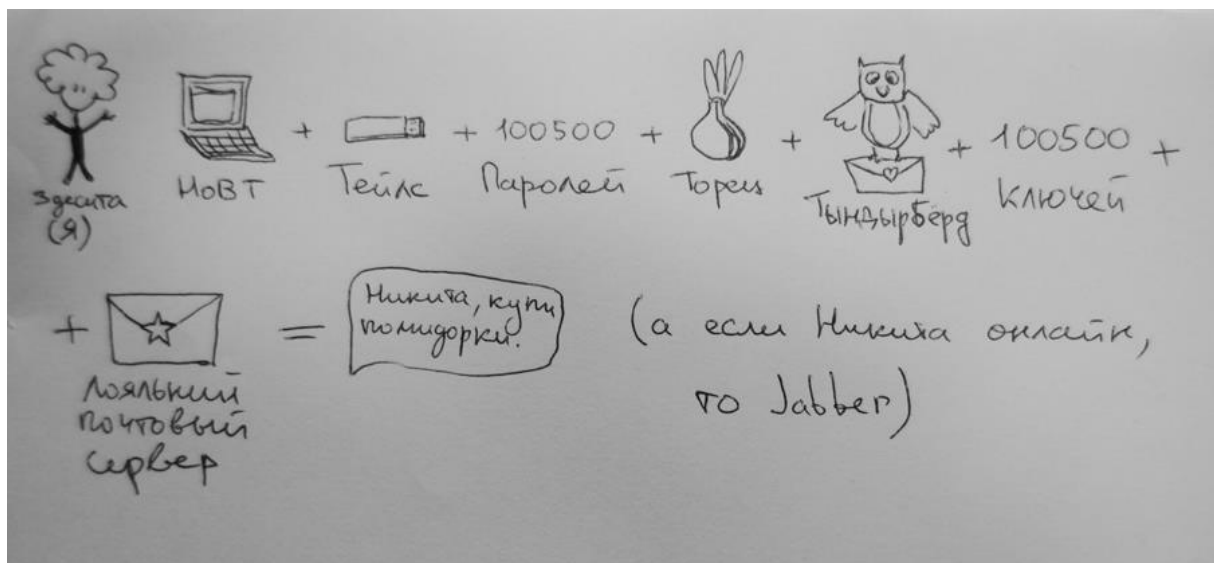 здесита
(я)
НоВТ
+ Тейлс
+ 100500
Паролей
+ Торец
+ Тындырбёрд
+ 100500
Ключей
+
+ Лояльний
почтовый
сервер
=
Никита, купи
помидорки.
(а если Никита онлайн,
то Jabber)